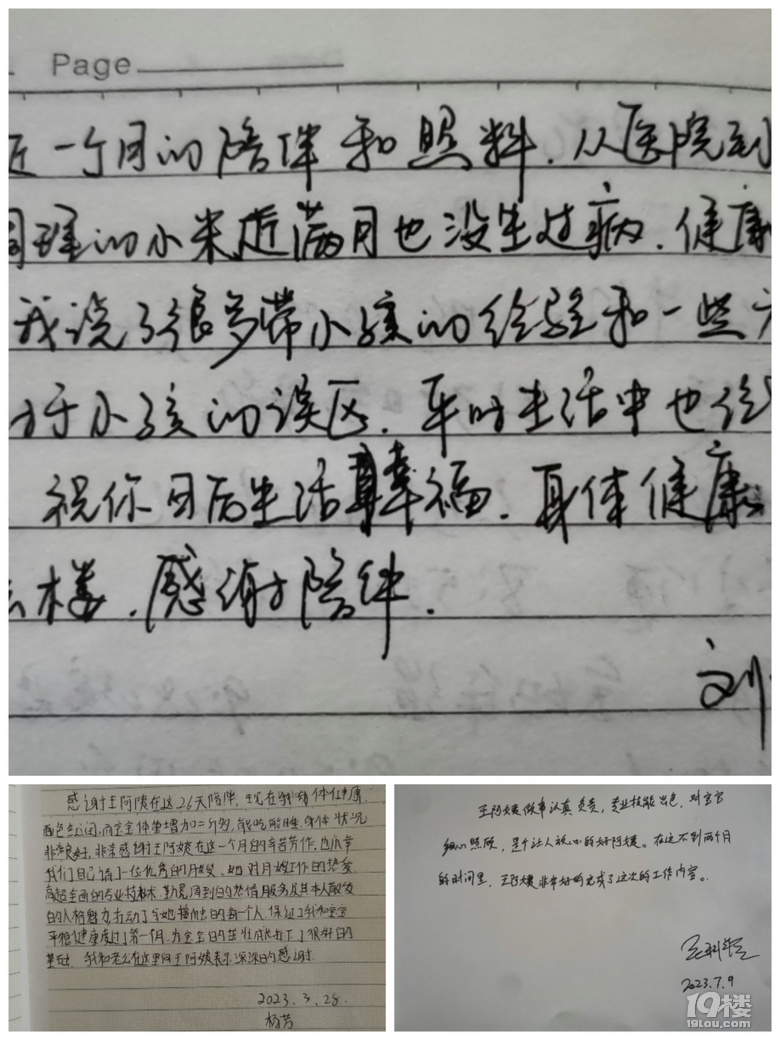 Page
近一个月的陪伴和照料.从医院到
调理的小米近满月也没生过病.健康
我说了很多带小孩的经验和一些
于小孩的误区.平时生活中也给
祝你日后生活幸福.身体健康
楼.感谢陪伴.
刘
感谢王阿姨在这26天陪伴,现在我身体健康,
面色红润,而宝宝体重增加二斤多,能吃能睡,身体状况
非常良好,非常感谢王阿姨在这一个月的辛苦劳作,也庆幸
我们自己请了一位优秀的月嫂。她对月嫂工作的热爱,
高超全面的专业技术,勤恳周到的热情服务及其本人散发
的人格魅力打动了与她接触的每一个人,保证了我和宝宝
平稳健康度过了第一个月,为宝宝的茁壮成长打下了很好的
基础,我和老公在这里向王阿姨表示深深的感谢.
2023.3.28.
杨芳
王阿姨做事认真负责,专业技能出色,对宝宝
细心照顾,是个让人放心的好阿姨。在这不到两个月
的时间里,王阿姨非常好的完成了这次的工作内容。
2023.7.9
19楼
19lou.com